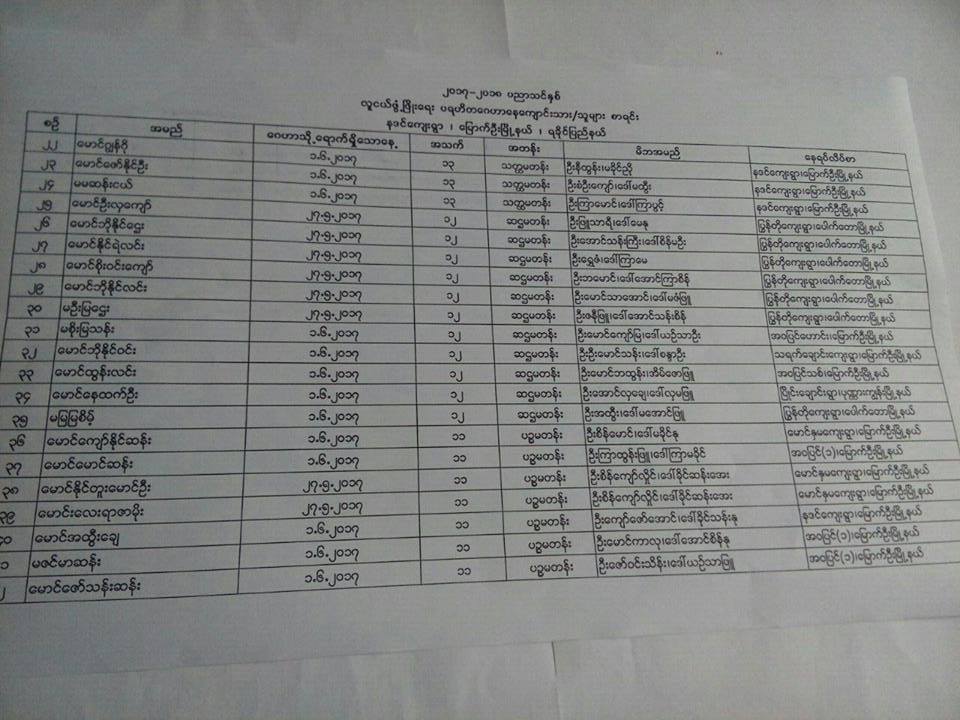 ၂၀၁၇-၂၀၁၈ ပညာသင်နှစ်
လူငယ်ဖွံ့ဖြိုးရေး ပရဟိတဂေဟာနေကျောင်းသား/သူများ စာရင်း
နဒင်ကျေးရွာ ၊ မြောက်ဦးမြို့နယ် ၊ ရခိုင်ပြည်နယ်
စဉ် အမည် ဂေဟာသို့ရောက်ရှိသောနေ့ အသက် အတန်း မိဘအမည် နေရပ်လိပ်စာ
၂၂ မောင်ဂျွန်ဗို ၁.၆.၂၀၁၇ ၁၃ သတ္တမတန်း ဦးနီထွန်း၊မခိုင်ညို နဒင်ကျေးရွာ၊မြောက်ဦးမြို့နယ်
၂၃ မောင်ဇော်နိုင်ဦး ၁.၆.၂၀၁၇ ၁၃ သတ္တမတန်း ဦးစံဦးကျော်၊ဒေါ်မထွီး နဒင်ကျေးရွာ၊မြောက်ဦးမြို့နယ်
၂၄ မမဆန်းငယ် ၁.၆.၂၀၁၇ ၁၃ သတ္တမတန်း ဦးကြာမောင်၊ဒေါ်ကြာပွင့် နဒင်ကျေးရွာ၊မြောက်ဦးမြို့နယ်
၂၅ မောင်ဦးလှကျော် ၂၇.၅.၂၀၁၇ ၁၂ ဆဌမတန်း ဦးဖြူသာရီ၊ဒေါ်မေနု ပြွန်တိုကျေးရွာ၊ပေါက်တောမြို့နယ်
၂၆ မောင်ဘိုနိုင်ဌေး ၂၇.၅.၂၀၁၇ ၁၂ ဆဌမတန်း ဦးအောင်သန်းကြီး၊ဒေါ်စိန်မဦး ပြွန်တိုကျေးရွာ၊ပေါက်တောမြို့နယ်
၂၇ မောင်နိုင်ရဲလင်း ၂၇.၅.၂၀၁၇ ၁၂ ဆဌမတန်း ဦးရွှေဇံ၊ဒေါ်ကြာမေ ပြွန်တိုကျေးရွာ၊ပေါက်တောမြို့နယ်
၂၈ မောင်စိုးဝင်းကျော် ၂၇.၅.၂၀၁၇ ၁၂ ဆဌမတန်း ဦးဘမောင်၊ဒေါ်အောင်ကြာစိန် ပြွန်တိုကျေးရွာ၊ပေါက်တောမြို့နယ်
၂၉ မောင်ဘိုနိုင်လင်း ၂၇.၅.၂၀၁၇ ၁၂ ဆဌမတန်း ဦးမောင်သာအောင်၊ဒေါ်မဇံဖြူ ပြွန်တိုကျေးရွာ၊ပေါက်တောမြို့နယ်
၃၀ မဦးမြဌေး ၂၇.၅.၂၀၁၇ ၁၂ ဆဌမတန်း ဦးဇနီဖြူ၊ဒေါ်အောင်သန်းစိန် ပြွန်တိုကျေးရွာ၊ပေါက်တောမြို့နယ်
၃၁ မစိုးမြသန်း ၁.၆.၂၀၁၇ ၁၂ ဆဌမတန်း ဦးမောင်ကျော်မြ၊ဒေါ်ယဉ်သာဦး အဝပြင်ဟောင်း၊မြောက်ဦးမြို့နယ်
၃၂ မောင်ဘိုနိုင်ဝင်း ၁.၆.၂၀၁၇ ၁၂ ဆဌမတန်း ဦးဦးမောင်သန်း၊ဒေါ်စန္ဒာဦး သရက်ချောင်းကျေးရွာ၊မြောက်ဦးမြို့နယ်
၃၃ မောင်ထွန်းလင်း ၁.၆.၂၀၁၇ ၁၂ ဆဌမတန်း ဦးမောင်ဘထွန်း၊အိစ်ဇောဖြူ အဝပြင်သစ်၊မြောက်ဦးမြို့နယ်
၃၄ မောင်နေထက်ဦး ၁.၆.၂၀၁၇ ၁၂ ဆဌမတန်း ဦးအောင်လှချေ၊ဒေါ်လှမဖြူ ပြိုင်းချောင်းရွာ၊ပုဏ္ဏားကျွန်းမြို့နယ်
၃၅ မမြမြစိမ့် ၁.၆.၂၀၁၇ ၁၂ ဆဌမတန်း ဦးအထွီး၊ဒေါ်မအောင်ဖြူ ပြွန်တိုကျေးရွာ၊ပေါက်တောမြို့နယ်
၃၆ မောင်ကျော်နိုင်ဆန်း ၁.၆.၂၀၁၇ ၁၁ ပဉ္စမတန်း ဦးစိန်မောင်၊ဒေါ်မခိုင်နု မောင်နှမကျေးရွာ၊မြောက်ဦးမြို့နယ်
၃၇ မောင်မောင်ဆန်း ၁.၆.၂၀၁၇ ၁၁ ပဉ္စမတန်း ဦးကြာထွန်းဖြူ၊ဒေါ်ကြာမခိုင် အဝပြင်(၁)၊မြောက်ဦးမြို့နယ်
၃၈ မောင်နိုင်တူးမောင်ဦး ၂၇.၅.၂၀၁၇ ၁၁ ပဉ္စမတန်း ဦးစိန်ကျော်လှိုင်၊ဒေါ်ခိုင်ဆန်းအေး မောင်နှမကျေးရွာ၊မြောက်ဦးမြို့နယ်
၃၉ မောင်းလေးရာဇာမိုး ၂၇.၅.၂၀၁၇ ၁၁ ပဉ္စမတန်း ဦးစိန်ကျော်လှိုင်၊ဒေါ်ခိုင်ဆန်းအေး မောင်နှမကျေးရွာ၊မြောက်ဦးမြို့နယ်
၄၀ မောင်အထွီးချေ ၁.၆.၂၀၁၇ ၁၁ ပဉ္စမတန်း ဦးကျော်ဇော်အောင်၊ဒေါ်ခိုင်သန်းနု နဒင်ကျေးရွာ၊မြောက်ဦးမြို့နယ်
၁ မဇင်မာဆန်း ၁.၆.၂၀၁၇ ၁၁ ပဉ္စမတန်း ဦးမောင်ကာလု၊ဒေါ်အောင်စိန်နု အဝပြင်(၁)၊မြောက်ဦးမြို့နယ်
၂ မောင်ဇော်သန်းဆန်း ၁.၆.၂၀၁၇ ၁၁ ပဉ္စမတန်း ဦးဇော်ဝင်းသိန်း၊ဒေါ်ယဉ်သာဖြူ အဝပြင်(၁)၊မြောက်ဦးမြို့နယ်